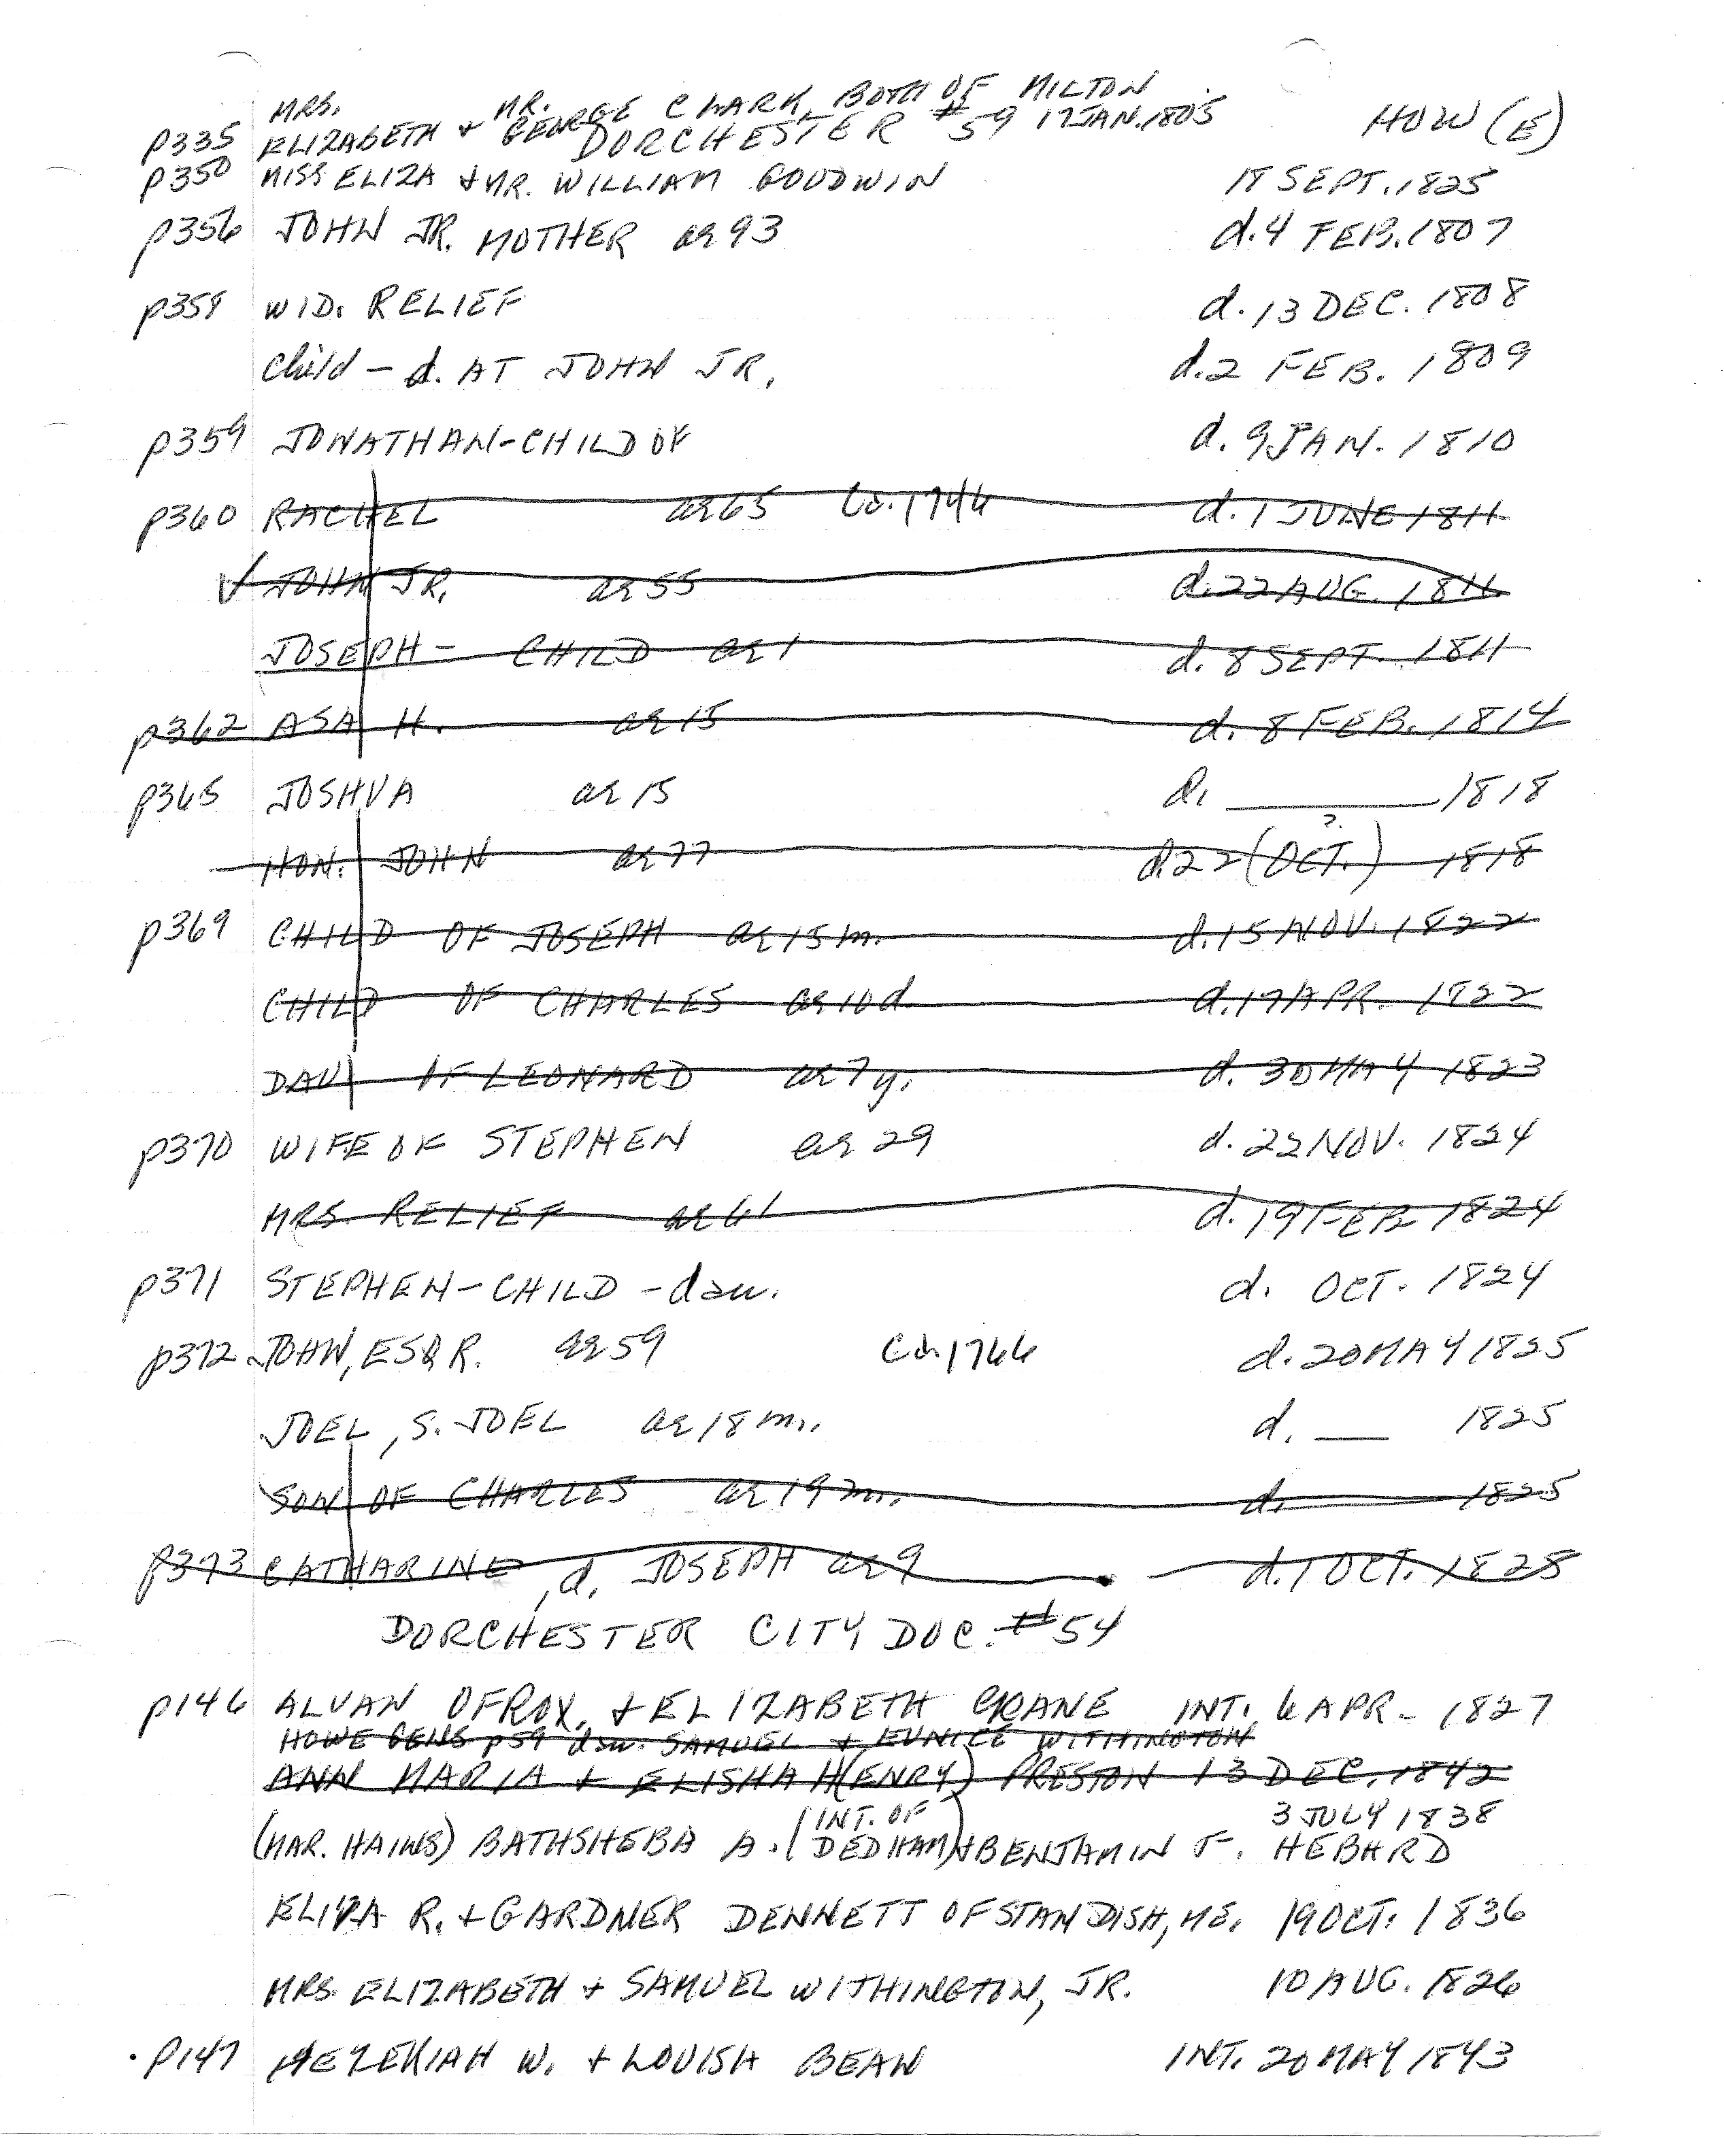 MRS. MR.
p335 ELIZABETH + GEORGE CLARK, BOTH OF MILTON
DORCHESTER #59 12 JAN. 1805 HOW (E)
p350 MISS ELIZA + MR. WILLIAM GOODWIN 18 SEPT. 1825
p356 JOHN JR. MOTHER ae 93 d. 4 FEB. 1807
p358 WID. RELIEF d. 13 DEC. 1808
child - d. AT JOHN JR. d. 2 FEB. 1809
p359 JONATHAN - CHILD OF d. 9 JAN. 1810
p360 RACHEL ae 65 Ca. 1746 d. 1 JUNE 1811
✓ JOHN JR. ae 55 d. 22 AUG. 1811
JOSEPH - CHILD ae 1 d. 8 SEPT. 1811
p362 ASA H. ae 15 d. 8 FEB. 1814
p365 JOSHUA ae 15 d. ______ 1818
HON. JOHN ae 77 d. 22 (OCT.) ? 1818
p369 CHILD OF JOSEPH ae 15 m. d. 15 NOV. 1822
CHILD OF CHARLES ae 10 d. d. 17 APR. 1822
DAU OF LEONARD ae 7 y. d. 30 MAY 1823
p370 WIFE OF STEPHEN ae 29 d. 22 NOV. 1824
MRS. RELIEF ae 61 d. 19 FEB 1824
p371 STEPHEN - CHILD - dau. d. OCT. 1824
p372 JOHN, ESQR. ae 59 Ca. 1766 d. 20 MAY 1825
JOEL, S. JOEL ae 18 m. d. __ 1825
SON OF CHARLES ae 19 m. d. ____ 1825
p373 CATHARINE, d. JOSEPH ae 9 d. 1 OCT. 1828
DORCHESTER CITY DOC. #54
p146 ALVAN OF ROX. + ELIZABETH CRANE INT. 6 APR - 1827
HOWE GENS p59 dau. SAMUEL + EUNICE WITHINGTON
ANN MARIA + ELISHA H(ENRY) PRESTON 13 DEC. 1842
(MAR. HAINS) BATHSHEBA A. (INT. OF DEDHAM) + BENJAMIN F. HEBARD 3 JULY 1838
ELIZA R. + GARDNER DENNETT OF STANDISH, ME. 19 OCT. 1836
MRS. ELIZABETH + SAMUEL WITHINGTON, JR. 10 AUG. 1826
. P147 HEZEKIAH W. + LOUISA BEAN INT. 20 MAY 1843